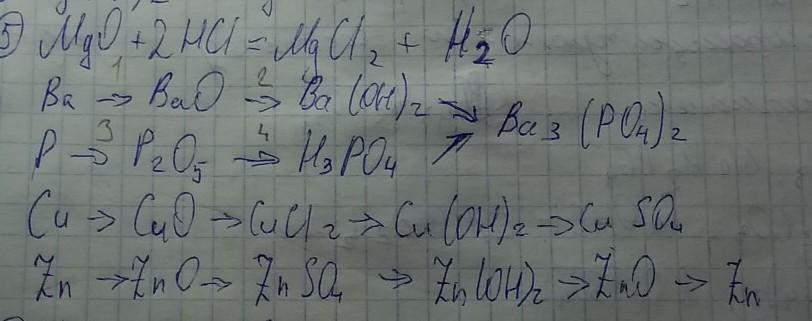 5) MgO + 2HCl = MgCl₂ + H₂O
Ba →¹ BaO →² Ba(OH)₂ ↘
Ba₃(PO₄)₂
P →³ P₂O₅ →⁴ H₃PO₄ ↗
Cu → CuO → CuCl₂ → Cu(OH)₂ → CuSO₄
Zn → ZnO → ZnSO₄ → Zn(OH)₂ → ZnO → Zn